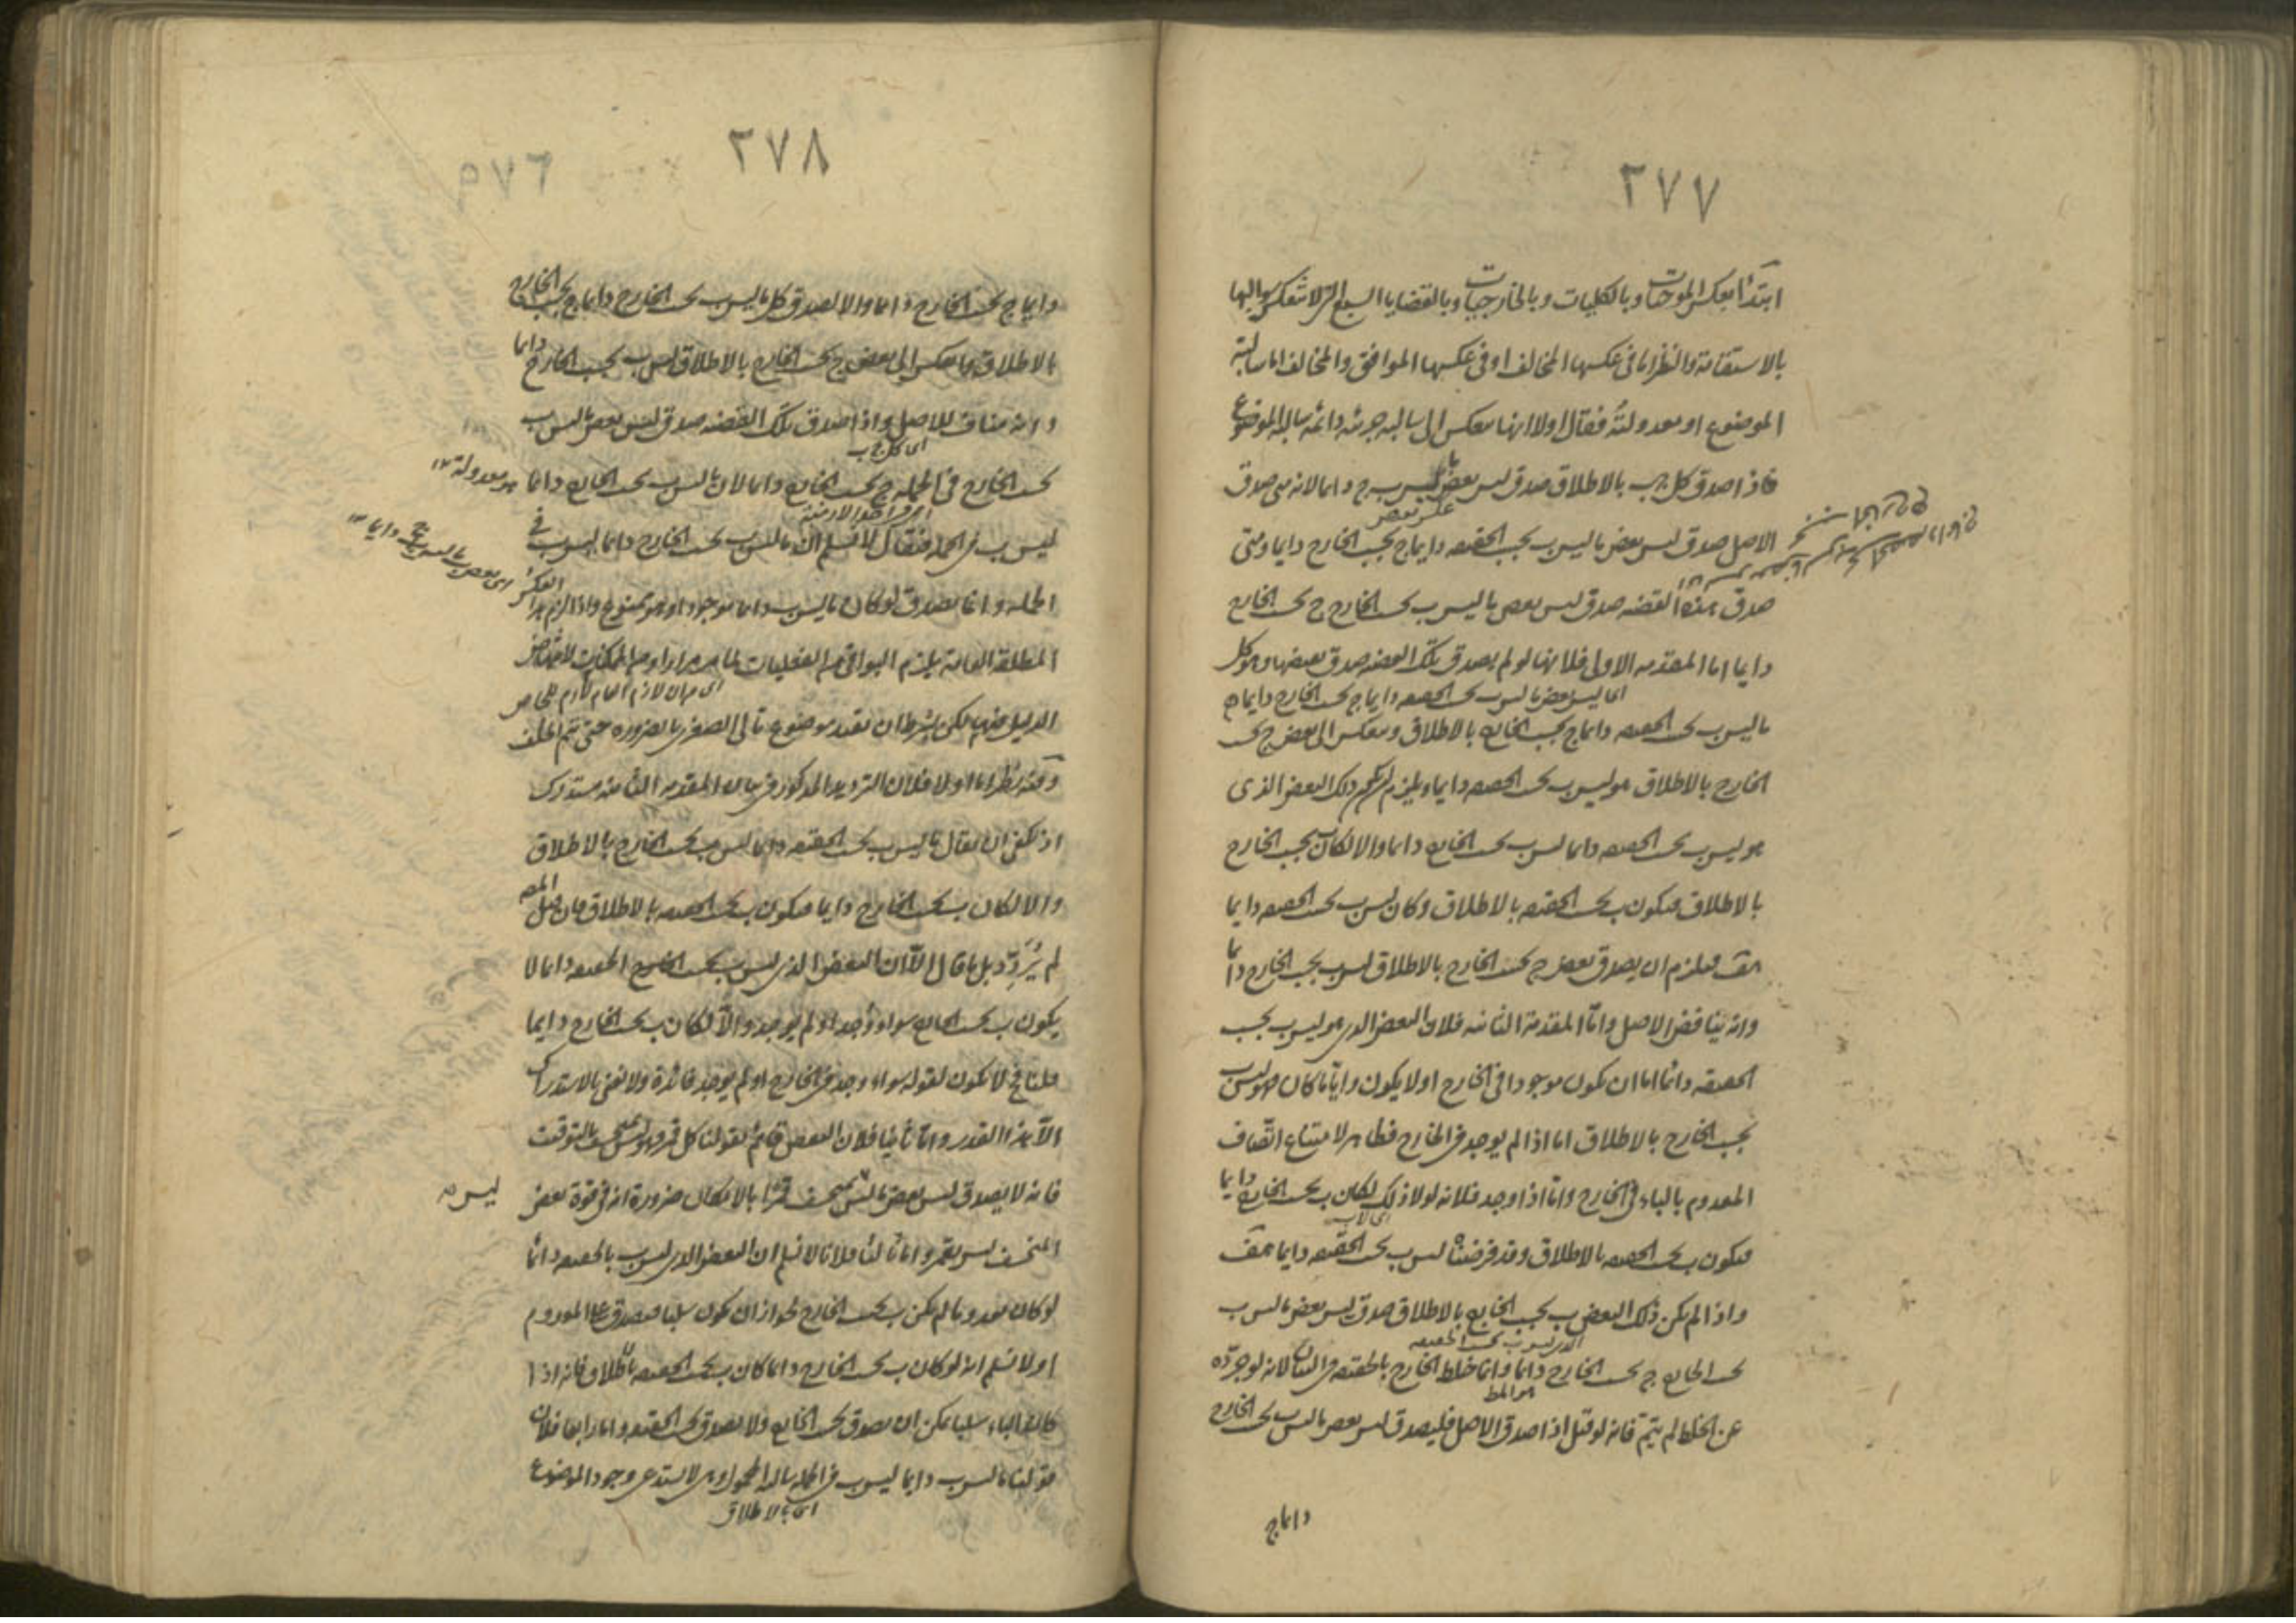 ٢٧٧
ابتدأ بعكس الموجبات وبالكليات وبالخارجيات وبالقضايا السبع التي لا تنعكس سوالبها
بالاستقامة والنظر اما في عكسها المخالف او في عكسها الموافق والمخالف اما سالبة
الموضوع او معدولته فقال اولا انها تنعكس الى سالبة جزئية دائمة سالبة الموضوع
فاذا صدق كل ج ب بالاطلاق صدق ليس بعض ما ليس ب ج دايما لانه متى صدق
الاصل صدق ليس بعض ما ليس ب بحسب الحقيقة دايما ج بحسب الخارج دايما ومتى
صدق هذه القضية صدق ليس بعض ما ليس ب بحسب الخارج ج بحسب الخارج
دايما اما المقدمة الاولى فلانها لو لم يصدق تلك القضية صدق نقيضها وهو كل
اى ليس بعض ما ليس ب بحسب الحقيقة دايما ج بحسب الخارج دايما
ما ليس ب بحسب الحقيقة دايما ج بحسب الخارج بالاطلاق وينعكس الى بعض ج بحسب
الخارج بالاطلاق هو ليس ب بحسب الحقيقة دايما ويلزم ذلك البعض الذى
هو ليس ب بحسب الحقيقة دايما ليس ب بحسب الخارج دايما والا لكان ب بحسب الخارج
بالاطلاق فيكون ب بحسب الحقيقة بالاطلاق وكان ليس ب بحسب الحقيقة دايما
هف فيلزم ان يصدق بعض ج بحسب الخارج بالاطلاق ليس ب بحسب الخارج دايما
وانه يناقض الاصل واما المقدمة الثانية فلان البعض الذى هو ليس ب بحسب
الحقيقة دائما اما ان يكون موجودا في الخارج او لا يكون وايا ما كان فهو ليس ب
بحسب الخارج بالاطلاق اما اذا لم يوجد في الخارج فظاهر لامتناع اتصاف
المعدوم بالباء في الخارج واما اذا وجد فلانه لولا ذلك لكان ب بحسب الخارج دايما
فيكون ب بحسب الحقيقة بالاطلاق وقد فرضناه ليس ب بحسب الحقيقة دايما هف
واذا لم يكن ذلك البعض ب بحسب الخارج بالاطلاق صدق ليس بعض ما ليس ب
الذى ليس ب بحسب الحقيقة
بحسب الخارج ج بحسب الخارج دائما وانما خلط الخارج بالحقيقة في البيان لانه لو جرده
عن الخلط لم يتم فانه لو قيل اذا صدق الاصل فليصدق ليس بعض ما ليس ب بحسب الخارج
دايما ج
٢٧٨
دايما ج بحسب الخارج دايما والا لصدق كل ما ليس ب بحسب الخارج دايما ج بحسب الخارج
بالاطلاق وينعكس الى بعض ج بحسب الخارج بالاطلاق ليس ب بحسب الخارج دايما
وانه مناف للاصل واذا صدق تلك القضية صدق ليس بعض ما ليس ب
اى كل ج ب
بحسب الخارج في الجملة ج بحسب الخارج دايما لان ما ليس ب بحسب الخارج دايما
هو معدولة ١٢
اى في احد الازمنة
ليس ب في الجملة فنقال لا نسلم ان ما ليس ب بحسب الخارج دايما ليس ب في
اى بعض ما ليس ب ج دايما ١٢
الجملة وانما يصدق لو كان ما ليس ب دايما موجودا وهو ممنوع واذا لزم هذا العكس
المطلقة العامة يلزم البواقي من الفعليات لما مر مرارا دون الممكنات
اى من ان لازم العام لازم للخاص
الدليل فيهما لكن بشرط ان يقيد موضوع تالى الصغرى بالضرورة حتى يتم الخلف
وفيه نظر اما اولا فلان الترديد المذكور في بيان المقدمة الثانية مستدرك
اذ يكفي ان يقال ما ليس ب بحسب الحقيقة دايما ليس ب بحسب الخارج بالاطلاق
والا لكان ب بحسب الخارج دايما فيكون ب بحسب الحقيقة بالاطلاق فان قيل المصه
لم يردد بل ما قال الا ان البعض الذى ليس ب بحسب الحقيقة دايما لا
يكون ب بحسب الخارج سواء وجد او لم يوجد والا لكان ب بحسب الخارج دايما
قلنا فح لا يكون لقوله سواء وجد في الخارج او لم يوجد فائدة ولا نعنى بالاستدراك
الا هذا القدر واما ثانيا فلان النقض قائم بقولنا كل قمر فهو منخسف بالتوقيت
فانه لا يصدق ليس بعض ما ليس بمنخسف قمرا بالامكان ضرورة انه في قوة بعض
ليس
المنخسف ليس بقمر واما ثالثا فلانا لا نسلم ان البعض الذى ليس ب بالحقيقة دائما
لو كان معدوما لم يكن ب بحسب الخارج لجواز ان يكون سلبا فيصدق على المعدوم
او لا نسلم انه لو كان ب بحسب الخارج دايما كان ب بحسب الحقيقة بالاطلاق فانه اذا
كان الباء سلبا يمكن ان يصدق بحسب الخارج ولا يصدق بحسب الحقيقة واما رابعا فلان
قولنا ما ليس ب دايما ليس ب في الجملة سالبة المحمول وهى لا تستدعى وجود الموضوع
اى بالاطلاق